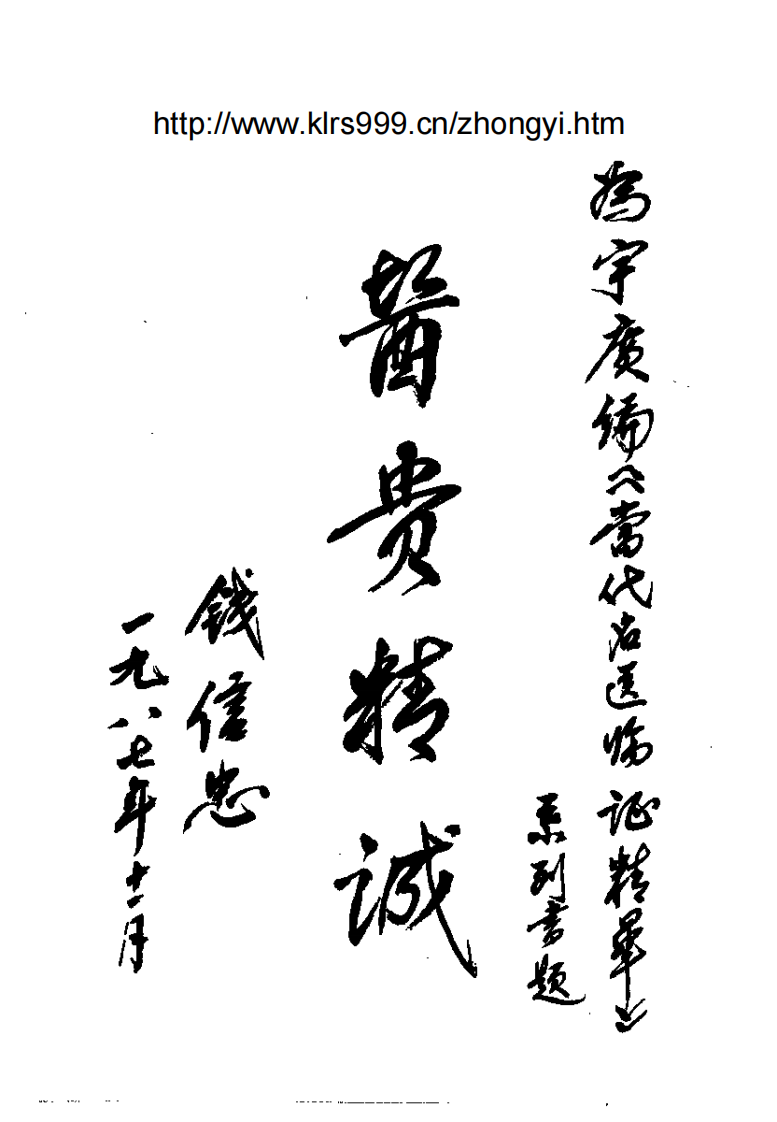 http://www.klrs999.cn/zhongyi.htm
为宇广编《當代名医临证精华》
系列書题
醫贵精誠
錢信忠
一九八七年十一月